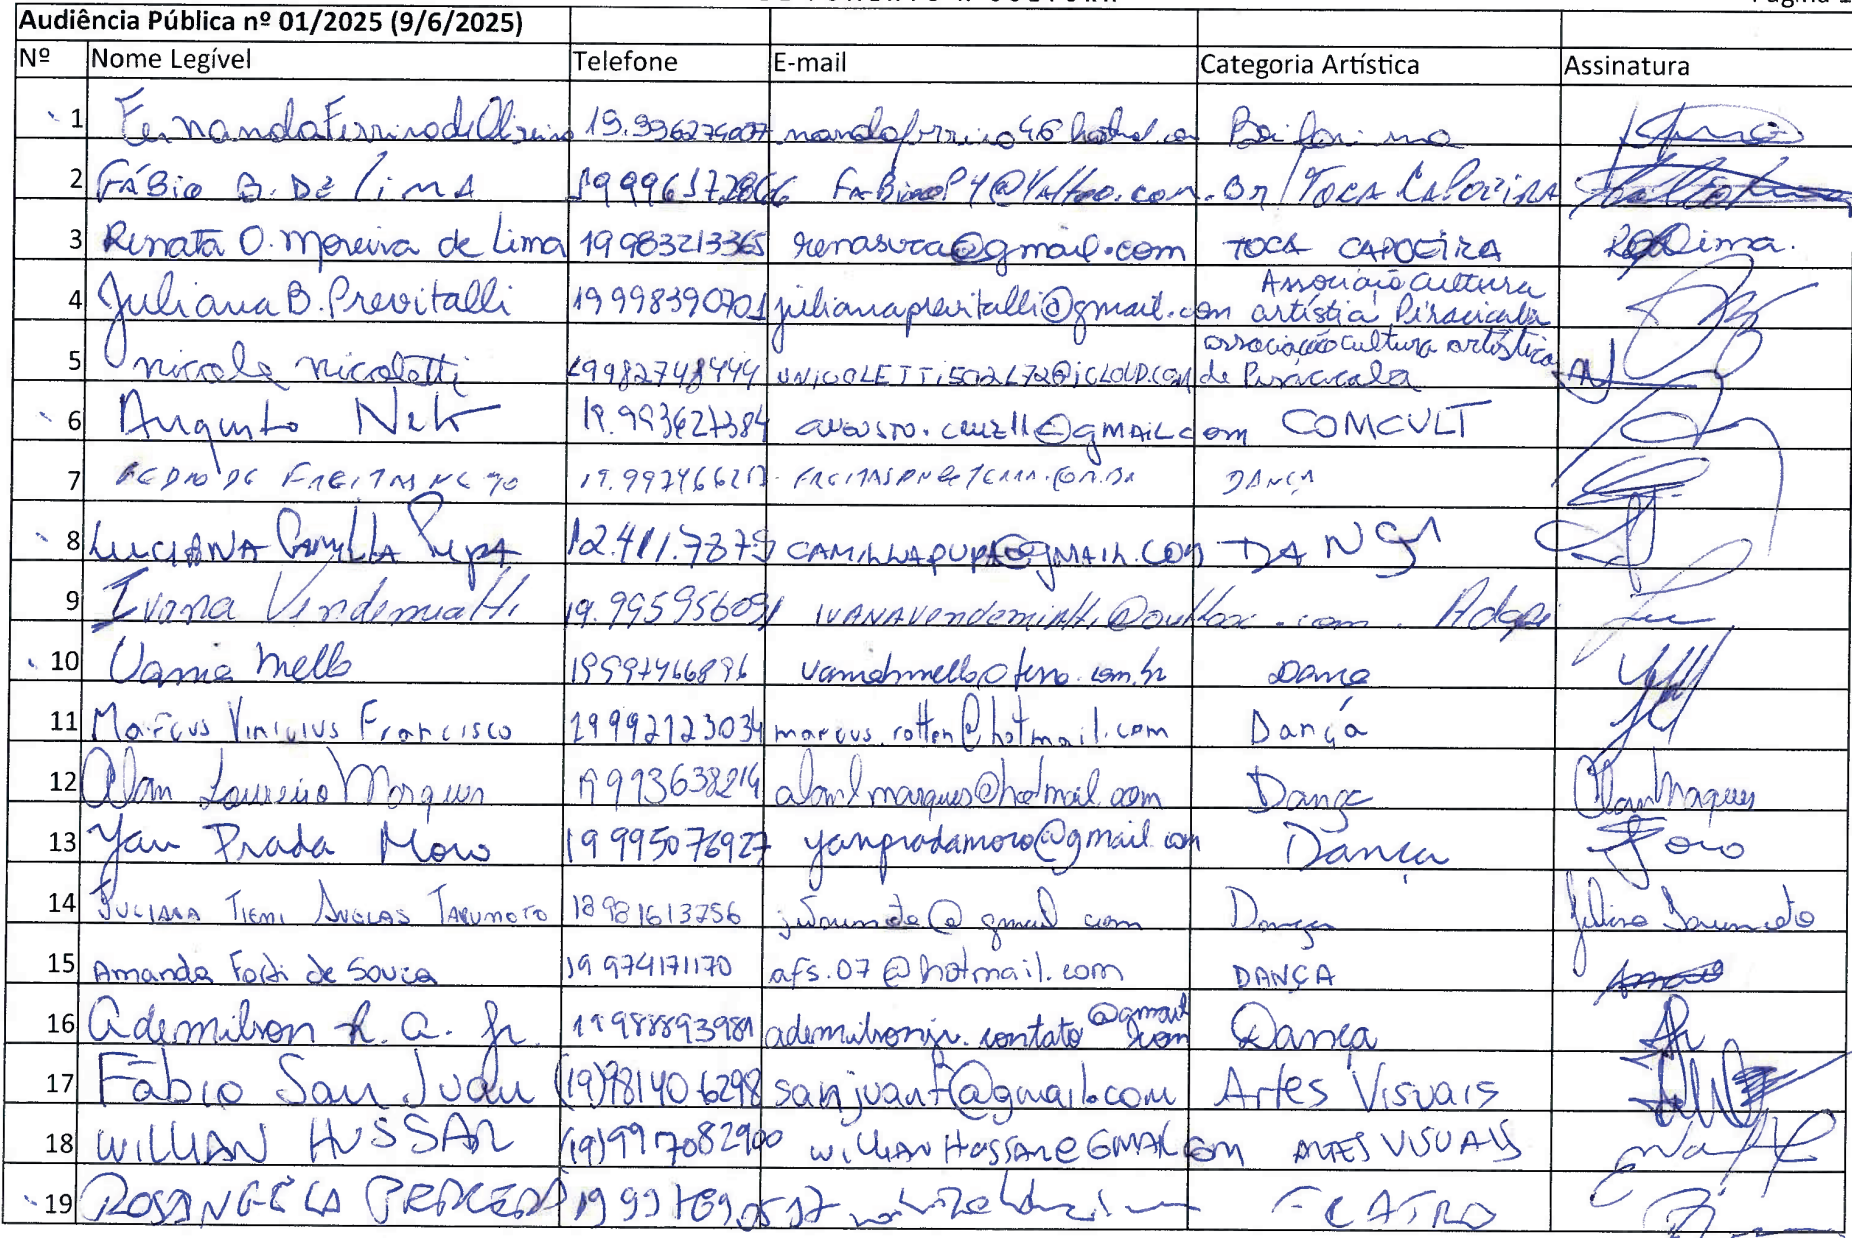 Audiência Pública nº 01/2025 (9/6/2025)
Nº Nome Legível Telefone E-mail Categoria Artística Assinatura
1 Fernanda Ferrino de Oliveira
2 FÁBIO B. DE Lima 19996172866 TOCA CAPOEIRA
3 Renata O. Moreira de Lima 19983213365 renasura@gmail.com TOCA CAPOEIRA
4 Juliana B. Previtalli 19998390701 julianaprevitalli@gmail.com Associação Cultura artística Piracicaba
5 nicole nicoletti 19982748444 associação cultura artística de Piracicaba
6 Augusto Neto 19.993627384 augusto.cruz11@gmail.com COMCULT
7 PEDRO DE FREITAS NETO DANÇA
8 LUCIANA Camilla Pupa 12.411.7879 CAMILLAPUPA@gMAIL.COM DANÇA
9 Ivana Vendemiatti 19.995956091
10 Vania Mello Dança
11 Marcus Vinicius Francisco 19992123034 marcus.rotten@hotmail.com Dança
12 Alan Loureiro Marques 19993638214 alanlmarques@hotmail.com Dança Alan Marques
13 Yan Prada Moro 19 995076927 yanpradamoro@gmail.com Dança
14 JULIANA TIEMI TARUMOTO gmail com Dança
15 Amanda Forti de Souza 19 974171170 afs.07@hotmail.com DANÇA
16 Ademilson R. A. Jr. 19988893981 ademilsonjr.contato@gmail.com Dança
17 Fábio San Juan (19)981406298 sanjuanf@gmail.com Artes Visuais
18 WILLIAN HUSSAR (19)997082900 willianHussar@GMAIL.com ARTES VISUAIS
19 ROSANGELA PEREIRA TEATRO